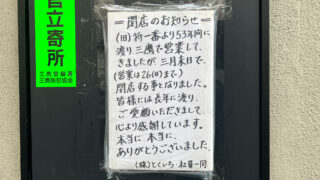 官立寄所
三鷹警察署
三鷹防犯協会
＝閉店のお知らせ＝
(旧)狩一番より53年間に
渡り三鷹で営業して
きましたが三月末日で、
(営業は26(日)まで)
閉店する事となりました。
皆様には長年に渡り、
ご愛顧いただきまして、
心より感謝しています。
本当に本当に、
ありがとうございました。
(株)とくいち・社員一同